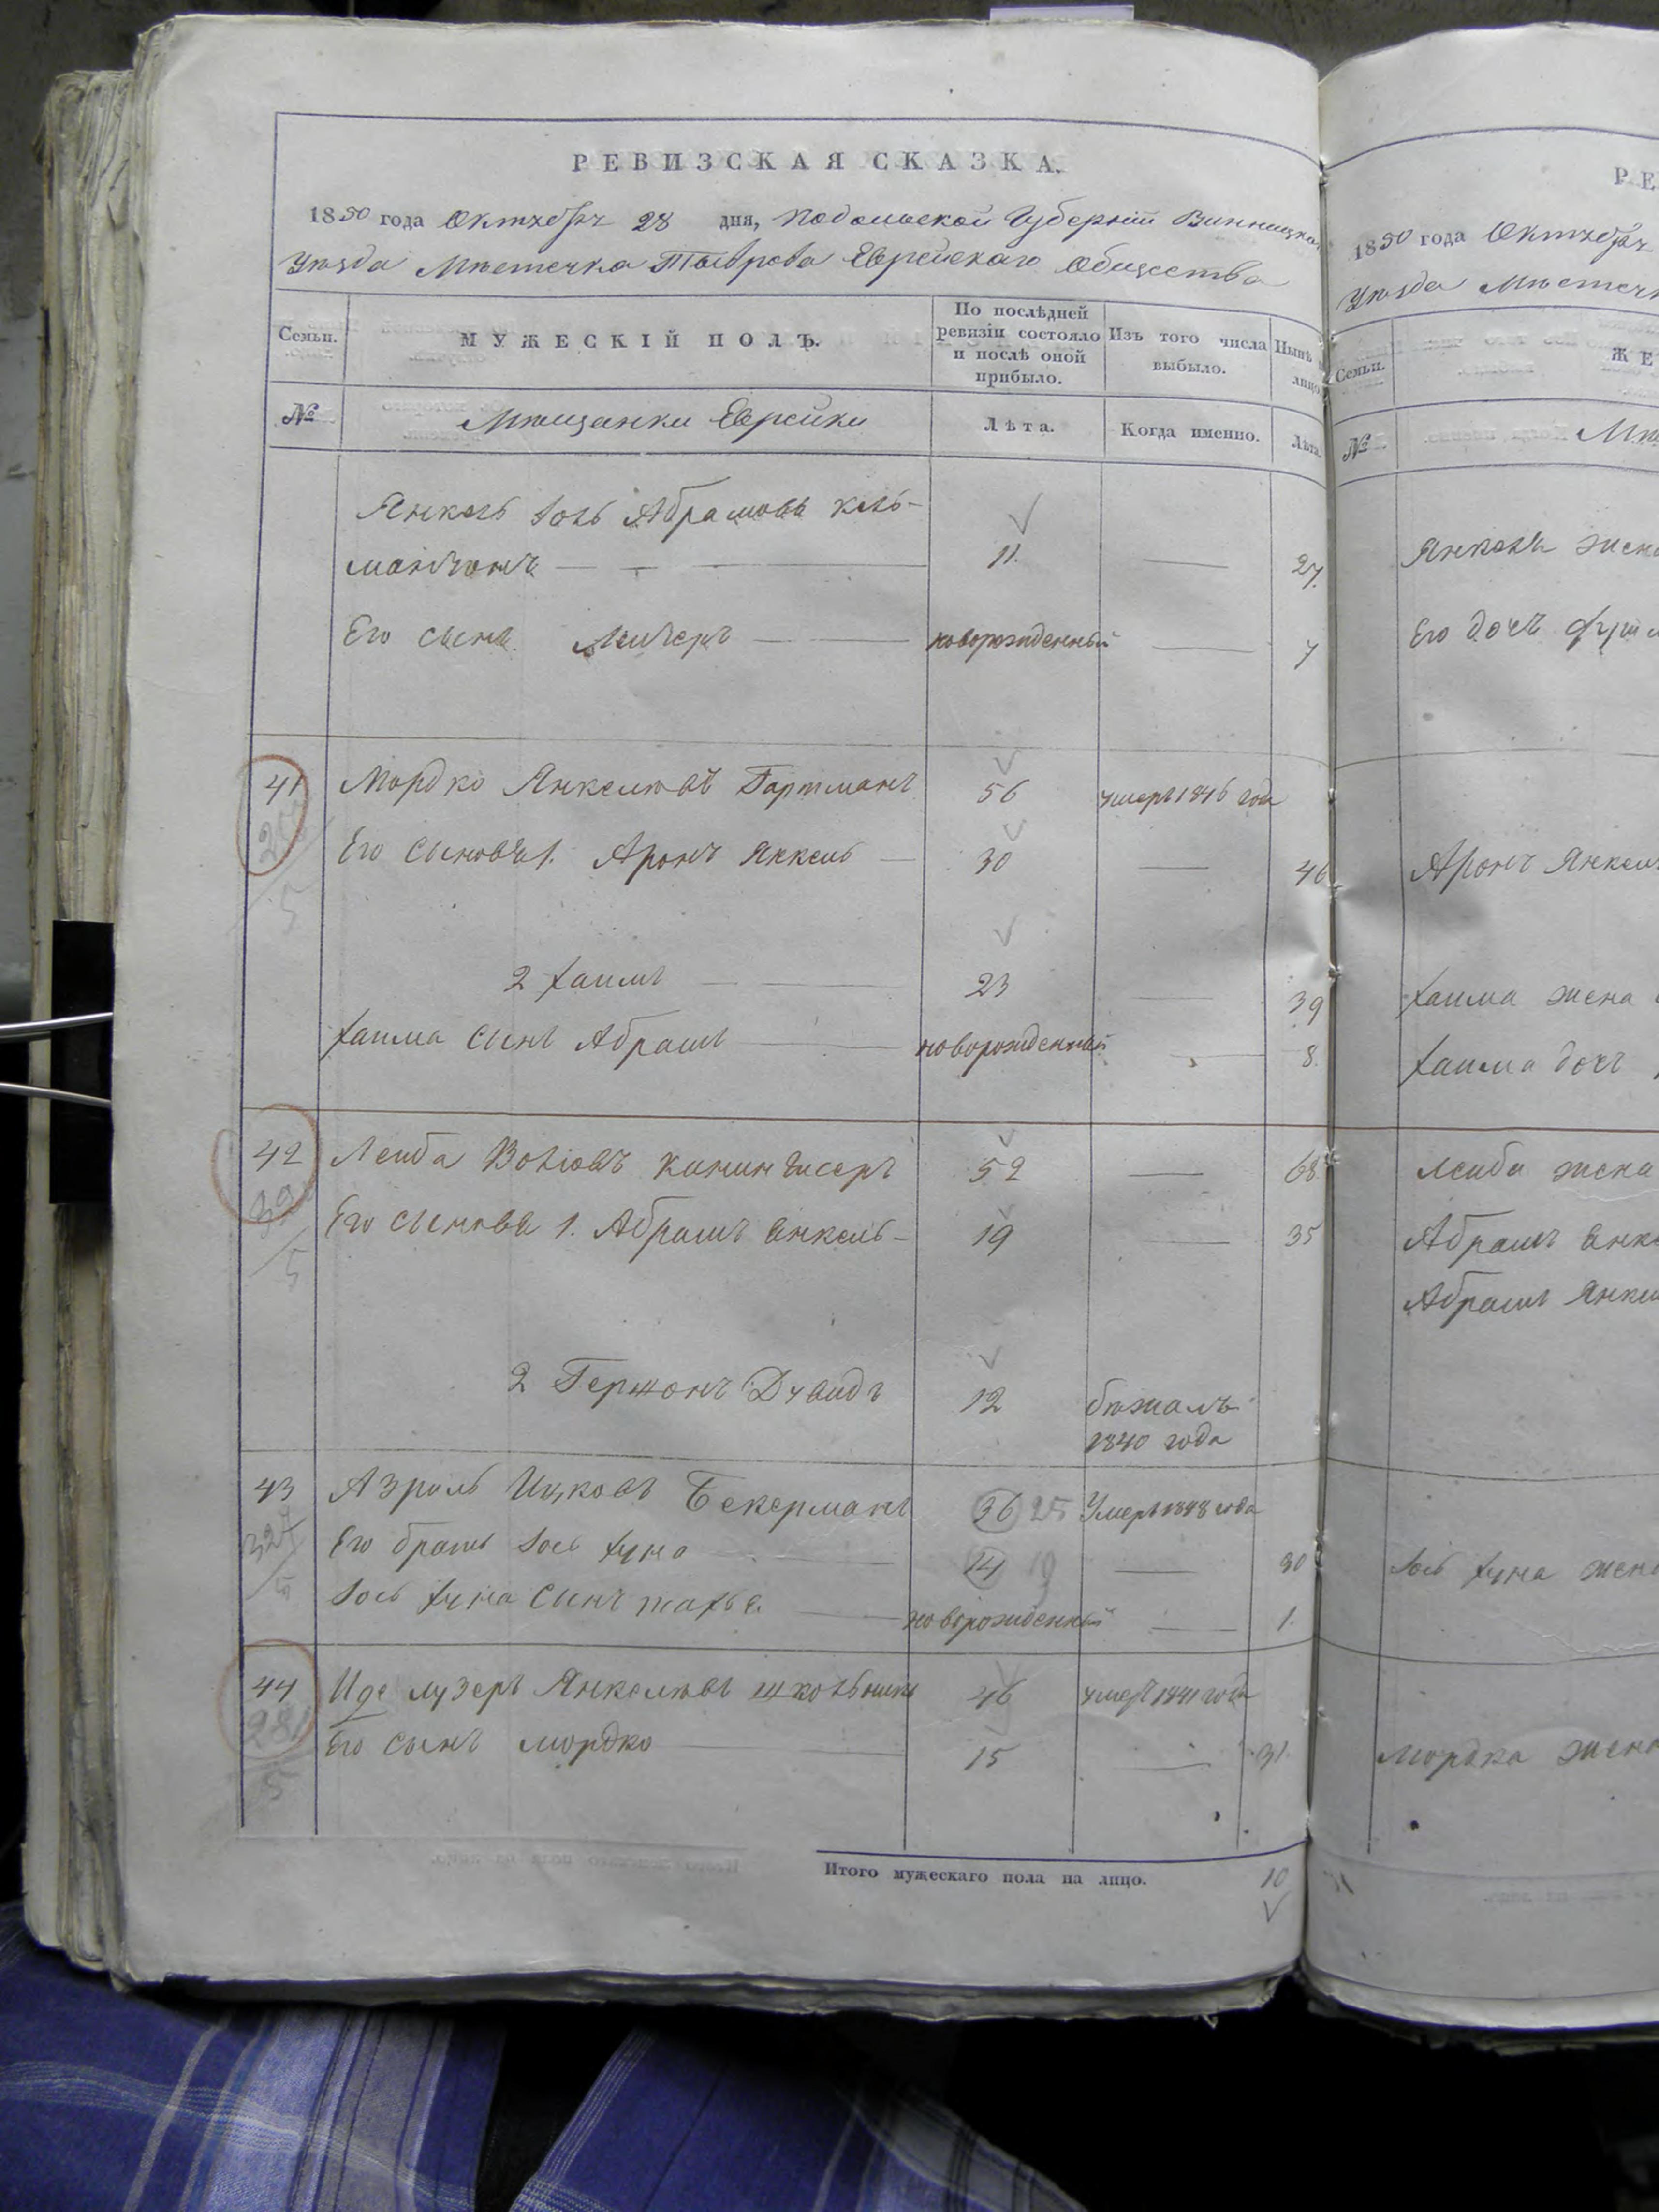 РЕВИЗСКАЯ СКАЗКА.
1850 года Октября 28 дня, Подольской Губерніи Винницкаго
Уѣзда Мѣстечка Тыврова Еврейскаго Общества
Семьи.
МУЖЕСКІЙ ПОЛЪ.
По послѣдней ревизіи состояло и послѣ оной прибыло.
Изъ того числа выбыло.
Нынѣ на лицо
№
Мѣщанки Еврейки
Лѣта.
Когда именно.
Лѣта.
Янкель Іось Абрамовъ
11. — 27.
Его сынъ — новорожденный — 7
41 Мордко Янкелювъ Гартманъ 56 умеръ 1846 года
Его сыновья 1. Аронъ Янкель — 30 — 46
2 Хаимъ — 23 — 39
Хаима сынъ Абрамъ — новорожденный — 8.
42 Лейба 52 — 68.
Его сыновья 1. Абрамъ Янкель — 19 — 35
2 Гершонъ Дувидъ 12 бѣжалъ
1840 года
43 Азроль Ицковъ Бекерманъ 36 25 Умеръ 1848 года
Его братъ Іось Хуна — 14 — 30
Іось Хуна сынъ — новорожденный — 1.
44 Иде лузеръ Янкелювъ школьникъ 46 умеръ 1841 года
281
5
Его сынъ мордко — 15 — 31.
Итого мужескаго пола на лицо. 10
РЕ
1850 года Октября
Уѣзда Мѣстечк
Семьи.
ЖЕ
№
Мѣ
Янкеля жена
Его дочь
Аронъ Янкель
Хаима жена
Хаима дочь
Лейба жена
Абрамъ Янке
Абрамъ Янкел
Іось Хуна жена
Мордка жена